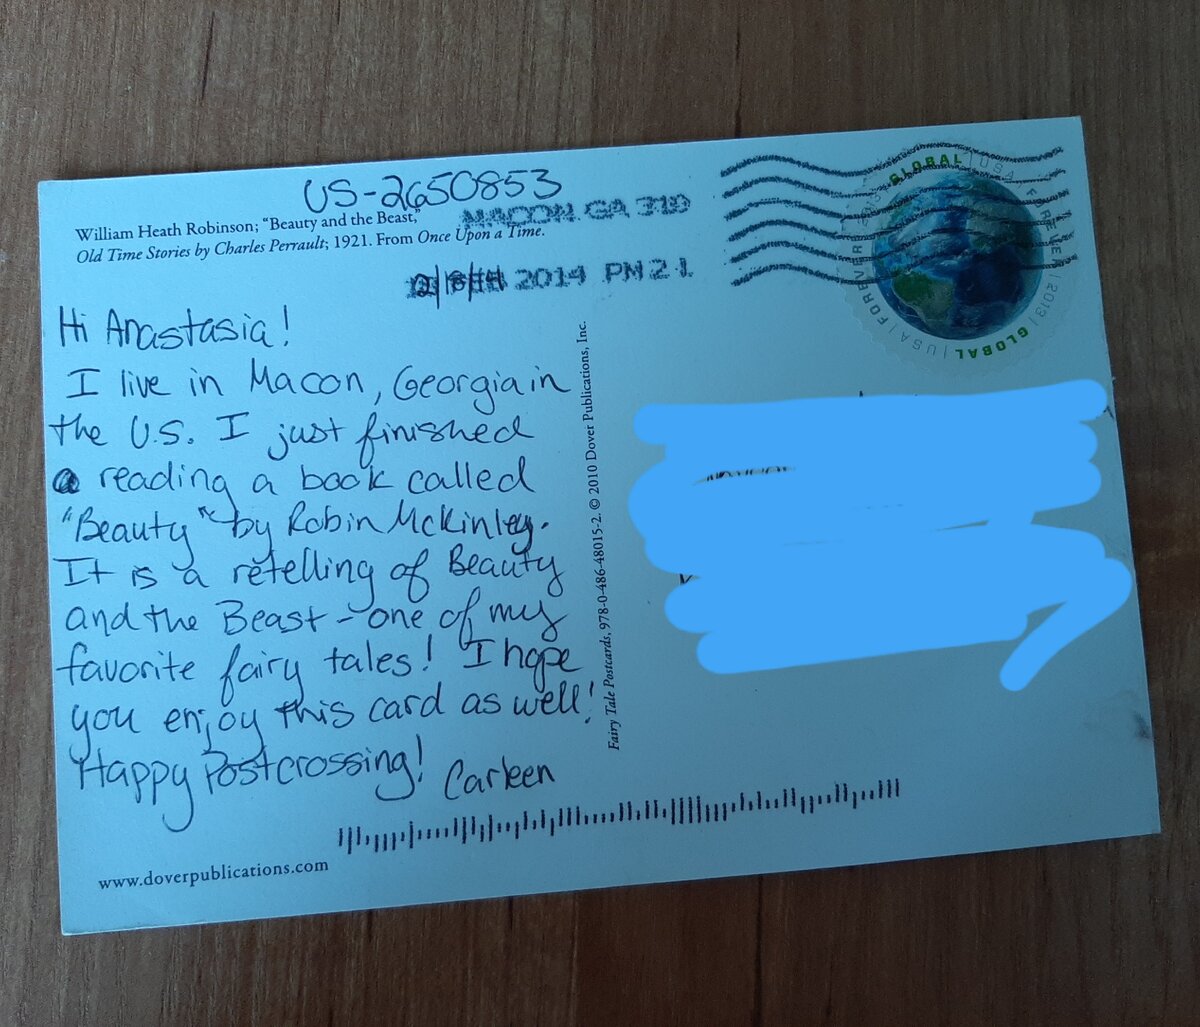 US-2650853
William Heath Robinson; “Beauty and the Beast,”
Old Time Stories by Charles Perrault; 1921. From Once Upon a Time.
MACON GA 310
2014 PM 2 L
GLOBAL | USA FOREVER | 2013 | GLOBAL | USA | FOREVER | 2013
Hi Anastasia!
I live in Macon, Georgia in
the U.S. I just finished
reading a book called
"Beauty" by Robin McKinley.
It is a retelling of Beauty
and the Beast - one of my
favorite fairy tales! I hope
you enjoy this card as well!
Happy Postcrossing!
Carleen
Fairy Tale Postcards, 978-0-486-48015-2. © 2010 Dover Publications, Inc.
www.doverpublications.com